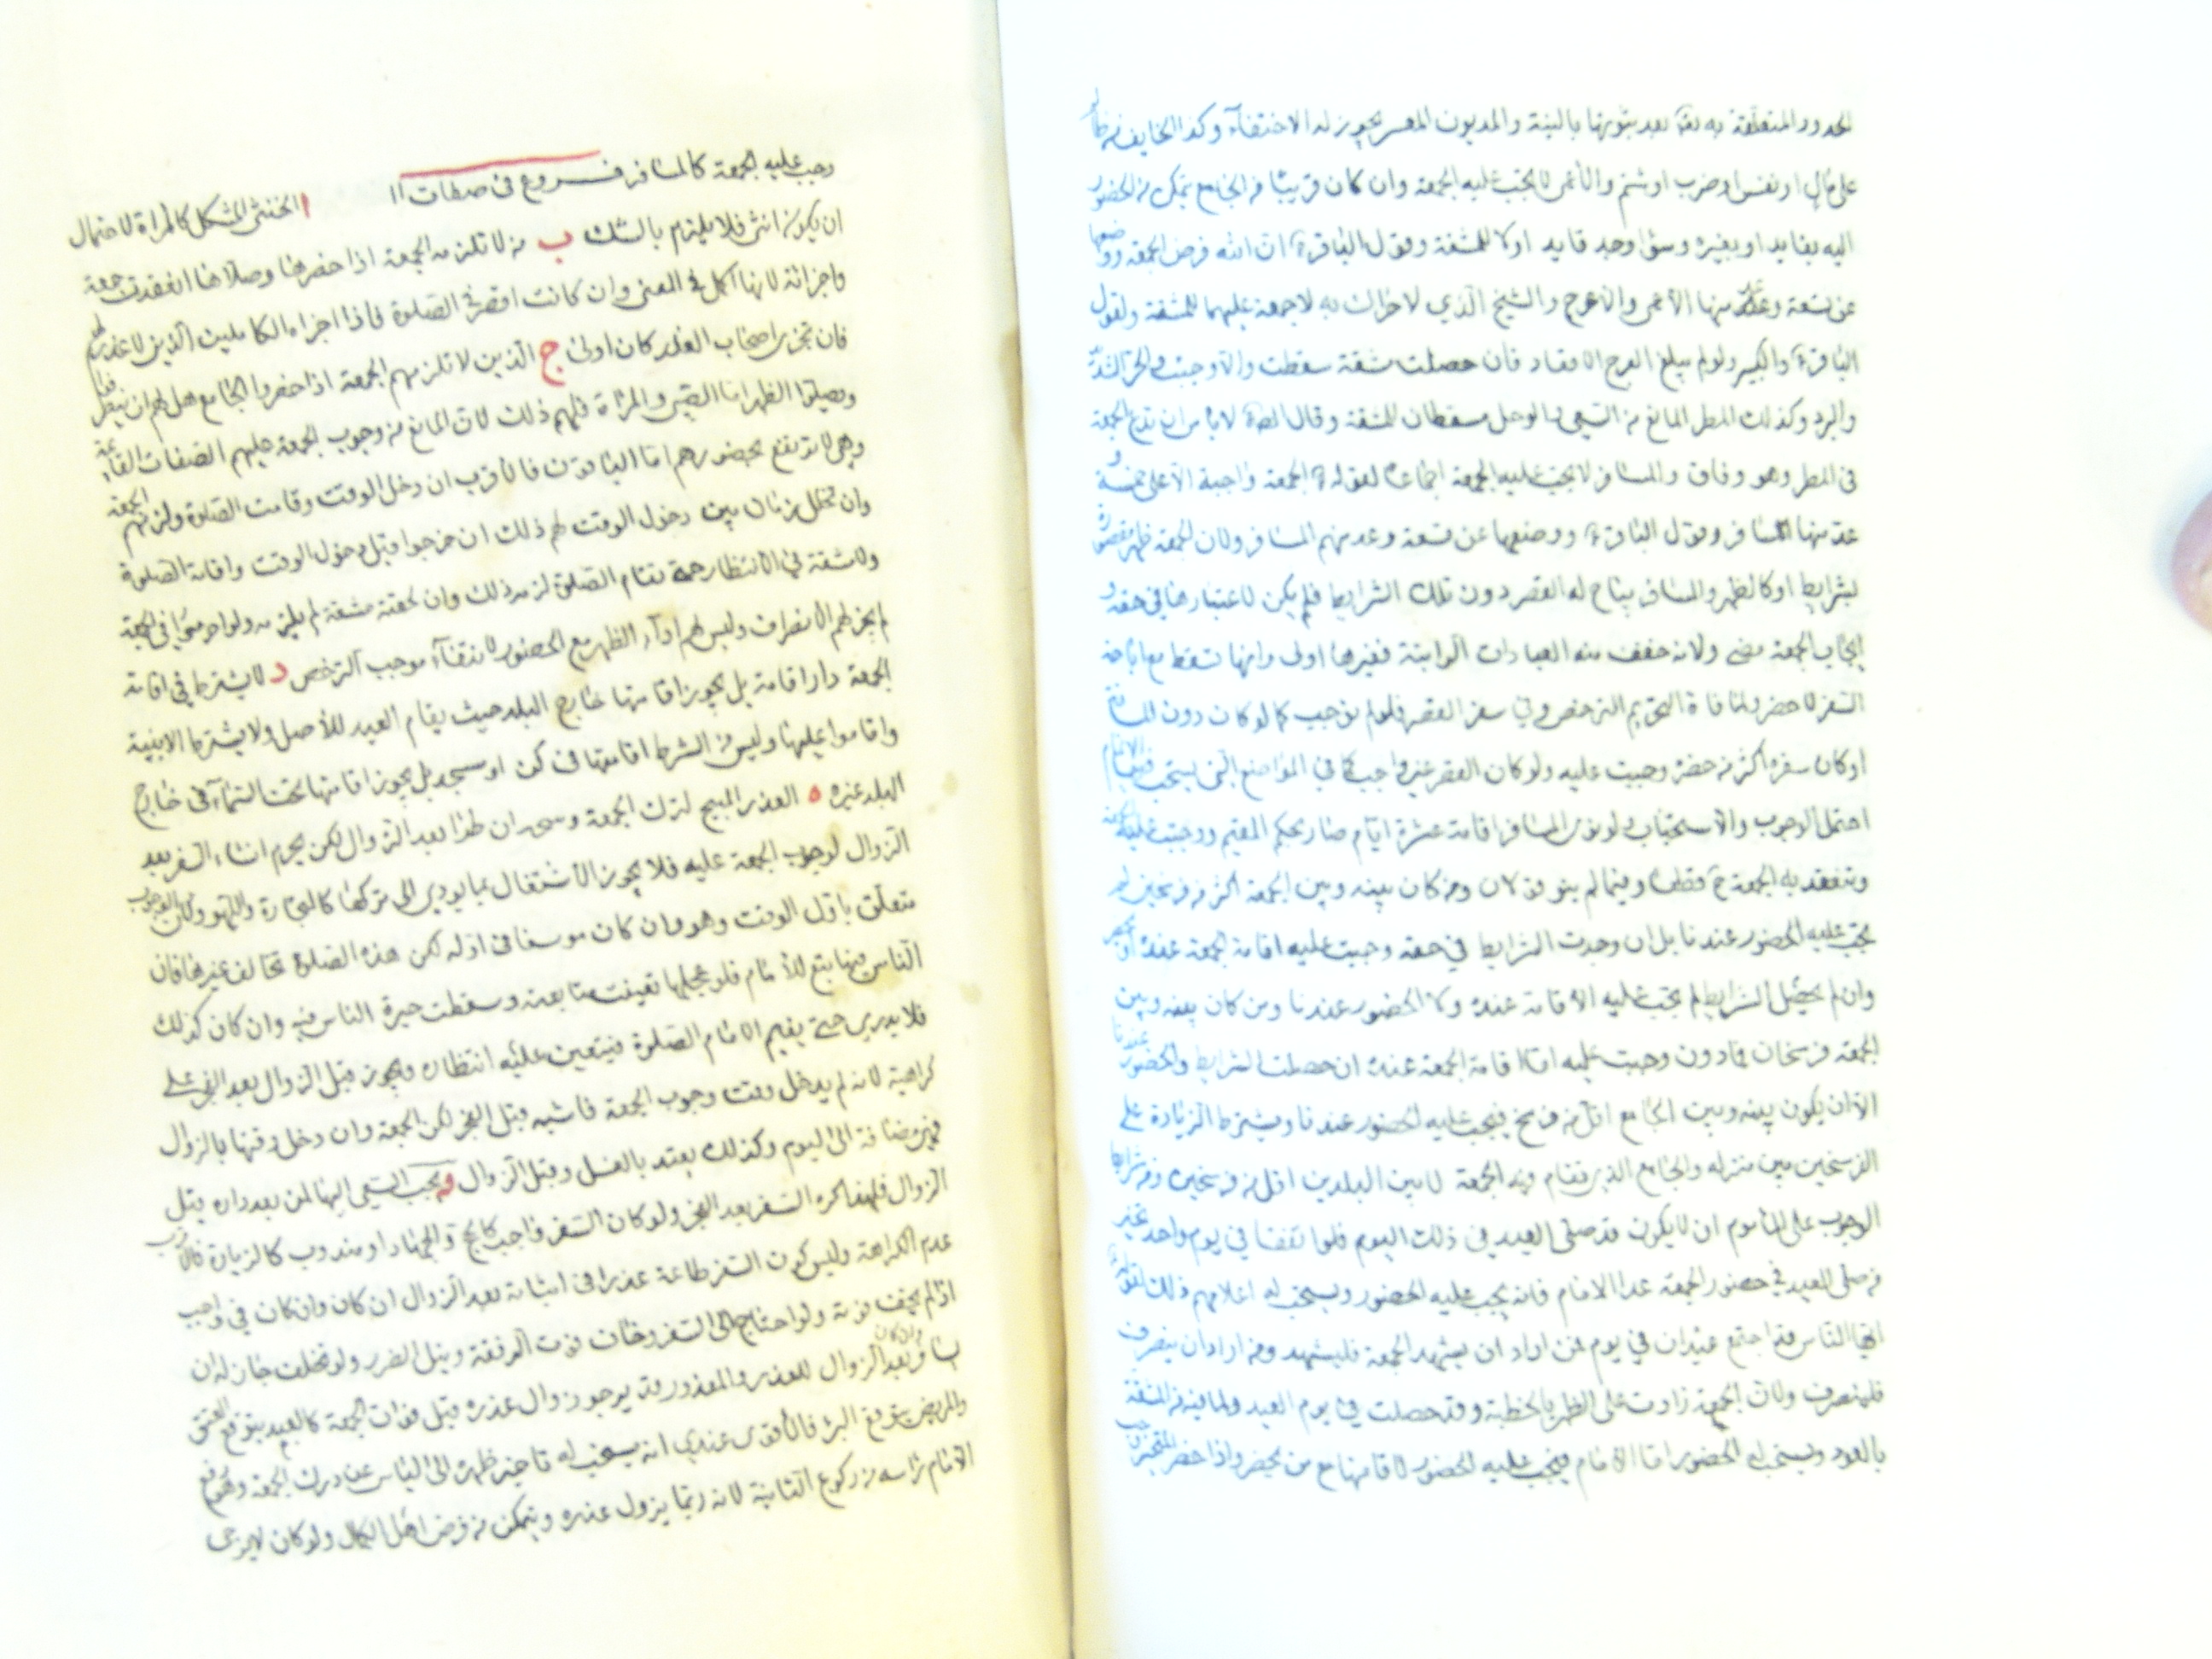 الحدود المتعلقة به لله بعد ثبوتها بالبينة والمديون المعسر يجوز له الاختفاء وكذا الخايف من ظالم
على مال او نفس او ضرب او شتم والأعمى لا يجب عليه الجمعة وان كان قريبا من الجامع يتمكن من الحضور
اليه بقايد او بغيره وسواء وجد قايد اولا للمشقة ولقول الباقر ان الله فرض الجمعة ووضعها
عن تسعة وعد منها الأعمى والأعرج والشيخ الذي لا حراك به لا جمعة عليهما للمشقة ولقول
الباقر والكبير ولو لم يبلغ العرج الاقعاد فان حصلت مشقة سقطت والا وجبت والحر الشديد
والبرد وكذلك المطر المانع من السعي والوحل مسقطان للمشقة وقال الصادق لا باس ان تدع الجمعة
فى المطر وهو وفاق والمسافر لا يجب عليه الجمعة اجماعا لقوله الجمعة واجبة الا على خمسة و
عد منها المسافر وقول الباقر ووضعها عن تسعة وعد منهم المسافر ولان الجمعة ظهر مقصورة
بشرايط او كالظهر والمسافر يباح له القصر دون تلك الشرايط فلم يكن لاعتبارها في حقه و
ايجاب الجمعة معنى ولانه خفف عنه العبادات الراتبة فغيرها اولى وانها تسقط مع اباحة
السفر لا حضر ولمنافاة التحريم الترخص وفي سفر القصر فلو لم يوجب كما لو كان دون المسافة
او كان سفره اكثر من حضره وجبت عليه ولو كان القصر غير واجب كما في المواضع التى يستحب فيها الاتمام
احتمل الوجوب والاستحباب ولو نوى المسافر اقامة عشرة ايام صار بحكم المقيم ووجبت عليه
وتنعقد به الجمعة ح قطعا وفيما لم ينو قولان ومن كان بينه وبين الجمعة اكثر من فرسخين لم
يجب عليه الحضور عندنا بل ان وجدت الشرايط في حقه وجبت عليه اقامة الجمعة عنده او يحضر
وان لم يحصل الشرايط لم يجب عليه الاقامة عنده ولا الحضور عندنا ومن كان بينه وبين
الجمعة فرسخان فما دون وجبت عليه اما اقامة الجمعة عنده ان حصلت الشرايط والحضور عندنا
الا ان يكون بينه وبين الجامع اقل من فرسخ فيجب عليه الحضور عندنا ويشترط الزيادة على
الفرسخين بين منزله والجامع الذي تقام فيه الجمعة لا بين البلدين اقل من فرسخين ومن شرايط
الوجوب على الماموم ان لا يكون قد صلى العيد في ذلك اليوم فلو اتفقا في يوم واحد تخير
من صلى العيد في حضور الجمعة عدا الامام فانه يجب عليه الحضور ويستحب له اعلامهم ذلك لقوله
ايها الناس قد اجتمع عيدان في يوم فمن اراد ان يشهد الجمعة فليشهد ومن اراد ان ينصرف
فلينصرف ولان الجمعة زادت على الظهر بالخطبة وقد حصلت في يوم العيد ولما فيه من المشقة
بالعود ويستحب له الحضور اما الامام فيجب عليه الحضور لاقامتها مع من يحضر واذا حضر المتخير وجب
وجب عليه الجمعة كالمسافر فــروع فى صفات ١١ ا الخنثى المشكل كالمراة لاحتمال
ان يكون انثى فلا يلزم بالشك ب من لا تلزمه الجمعة اذا حضرها وصلاها انعقدت جمعة
واجزاته لانها اكمل في المعنى وان كانت اقصر في الصلوة فاذا اجزاء الكاملين الذين لا عذر لهم
فان تجزى اصحاب العذر كان اولى ج الذين لا تلزمهم الجمعة اذا حضروا الجامع هل لهم ان ينصرفوا
ويصلوا الظهر اما الصبى والمراة فلهم ذلك لان المانع من وجوب الجمعة عليهم الصفات القايمة
وهي لا ترتفع بحضورهم اما الباقون فالاقرب ان دخل الوقت وقامت الصلوة ولزمهم الجمعة
وان تخلل زمان بين دخول الوقت لهم ذلك ان خرجوا قبل دخول الوقت واقامة الصلوة
ولا مشقة في الانتظار حتى تقام الصلوة لزمه ذلك وان لحقته مشقة لم يلزمه ولو احرموا في الجمعة
لم يجز لهم الانصراف وليس لهم اداء الظهر مع الحضور لانتفاء موجب الترخص د لا يشترط في اقامة
الجمعة دار اقامة بل يجوز اقامتها خارج البلد حيث يقام العيد للأصل ولا يشترط الابنية
واقاموا عليها وليس من الشرط اقامتها فى كن او مسجد بل يجوز اقامتها تحت السماء فى خارج
البلد غيره ه العذر المبيح لترك الجمعة ان طرا بعد الزوال لكن يحرم انشاء السفر بعد
الزوال لوجوب الجمعة عليه فلا يجوز الاشتغال بما يودى الى تركها كالتجارة واللهو ولان الوجوب
متعلق باول الوقت وهو وان كان موسعا فى اوله لكن هذه الصلوة تخالف غيرها فان
الناس فيها تبع للامام فلو عجلها تعينت متابعته وسقطت خيرة الناس فيه وان كان كذلك
فلا يدرى حتى يقيم الامام الصلوة فيتعين عليه انتظاره ويجوز قبل الزوال بعد الفجر على
كراهية لانه لم يدخل وقت وجوب الجمعة فاشبه قبل الفجر لكن الجمعة وان دخل وقتها بالزوال
فهى مضافة الى اليوم وكذلك يعتد بالغسل وقبل الزوال ويجب السعى اليها لمن بعد داره قبل
الزوال فلهذا كره السفر بعد الفجر ولو كان السفر واجبا كالحج والجهاد او مندوب كالزيارة فالاقرب
عدم الكراهة وليس كون السفر طاعة عذرا فى انشائه بعد الزوال ان كان وان كان في واجب
اذا لم يخف فوته ولو احتاج الى السفر وخاف فوت الرفقة وبنل الضرر ولو تخلف جاز له ان
يسافر بعد الزوال للعذر والمعذور قد يرجو زوال عذره قبل فوات الجمعة كالعبد يتوقع العتق
والمريض يتوقع البرء فالأقوى عندي انه يستحب له تاخير ظهره الى الياس عن درك الجمعة وهو برفع
الامام راسه من ركوع الثانية لانه ربما يزول عذره ويتمكن من فرض اهل الكمال ولو كان لا يرجى